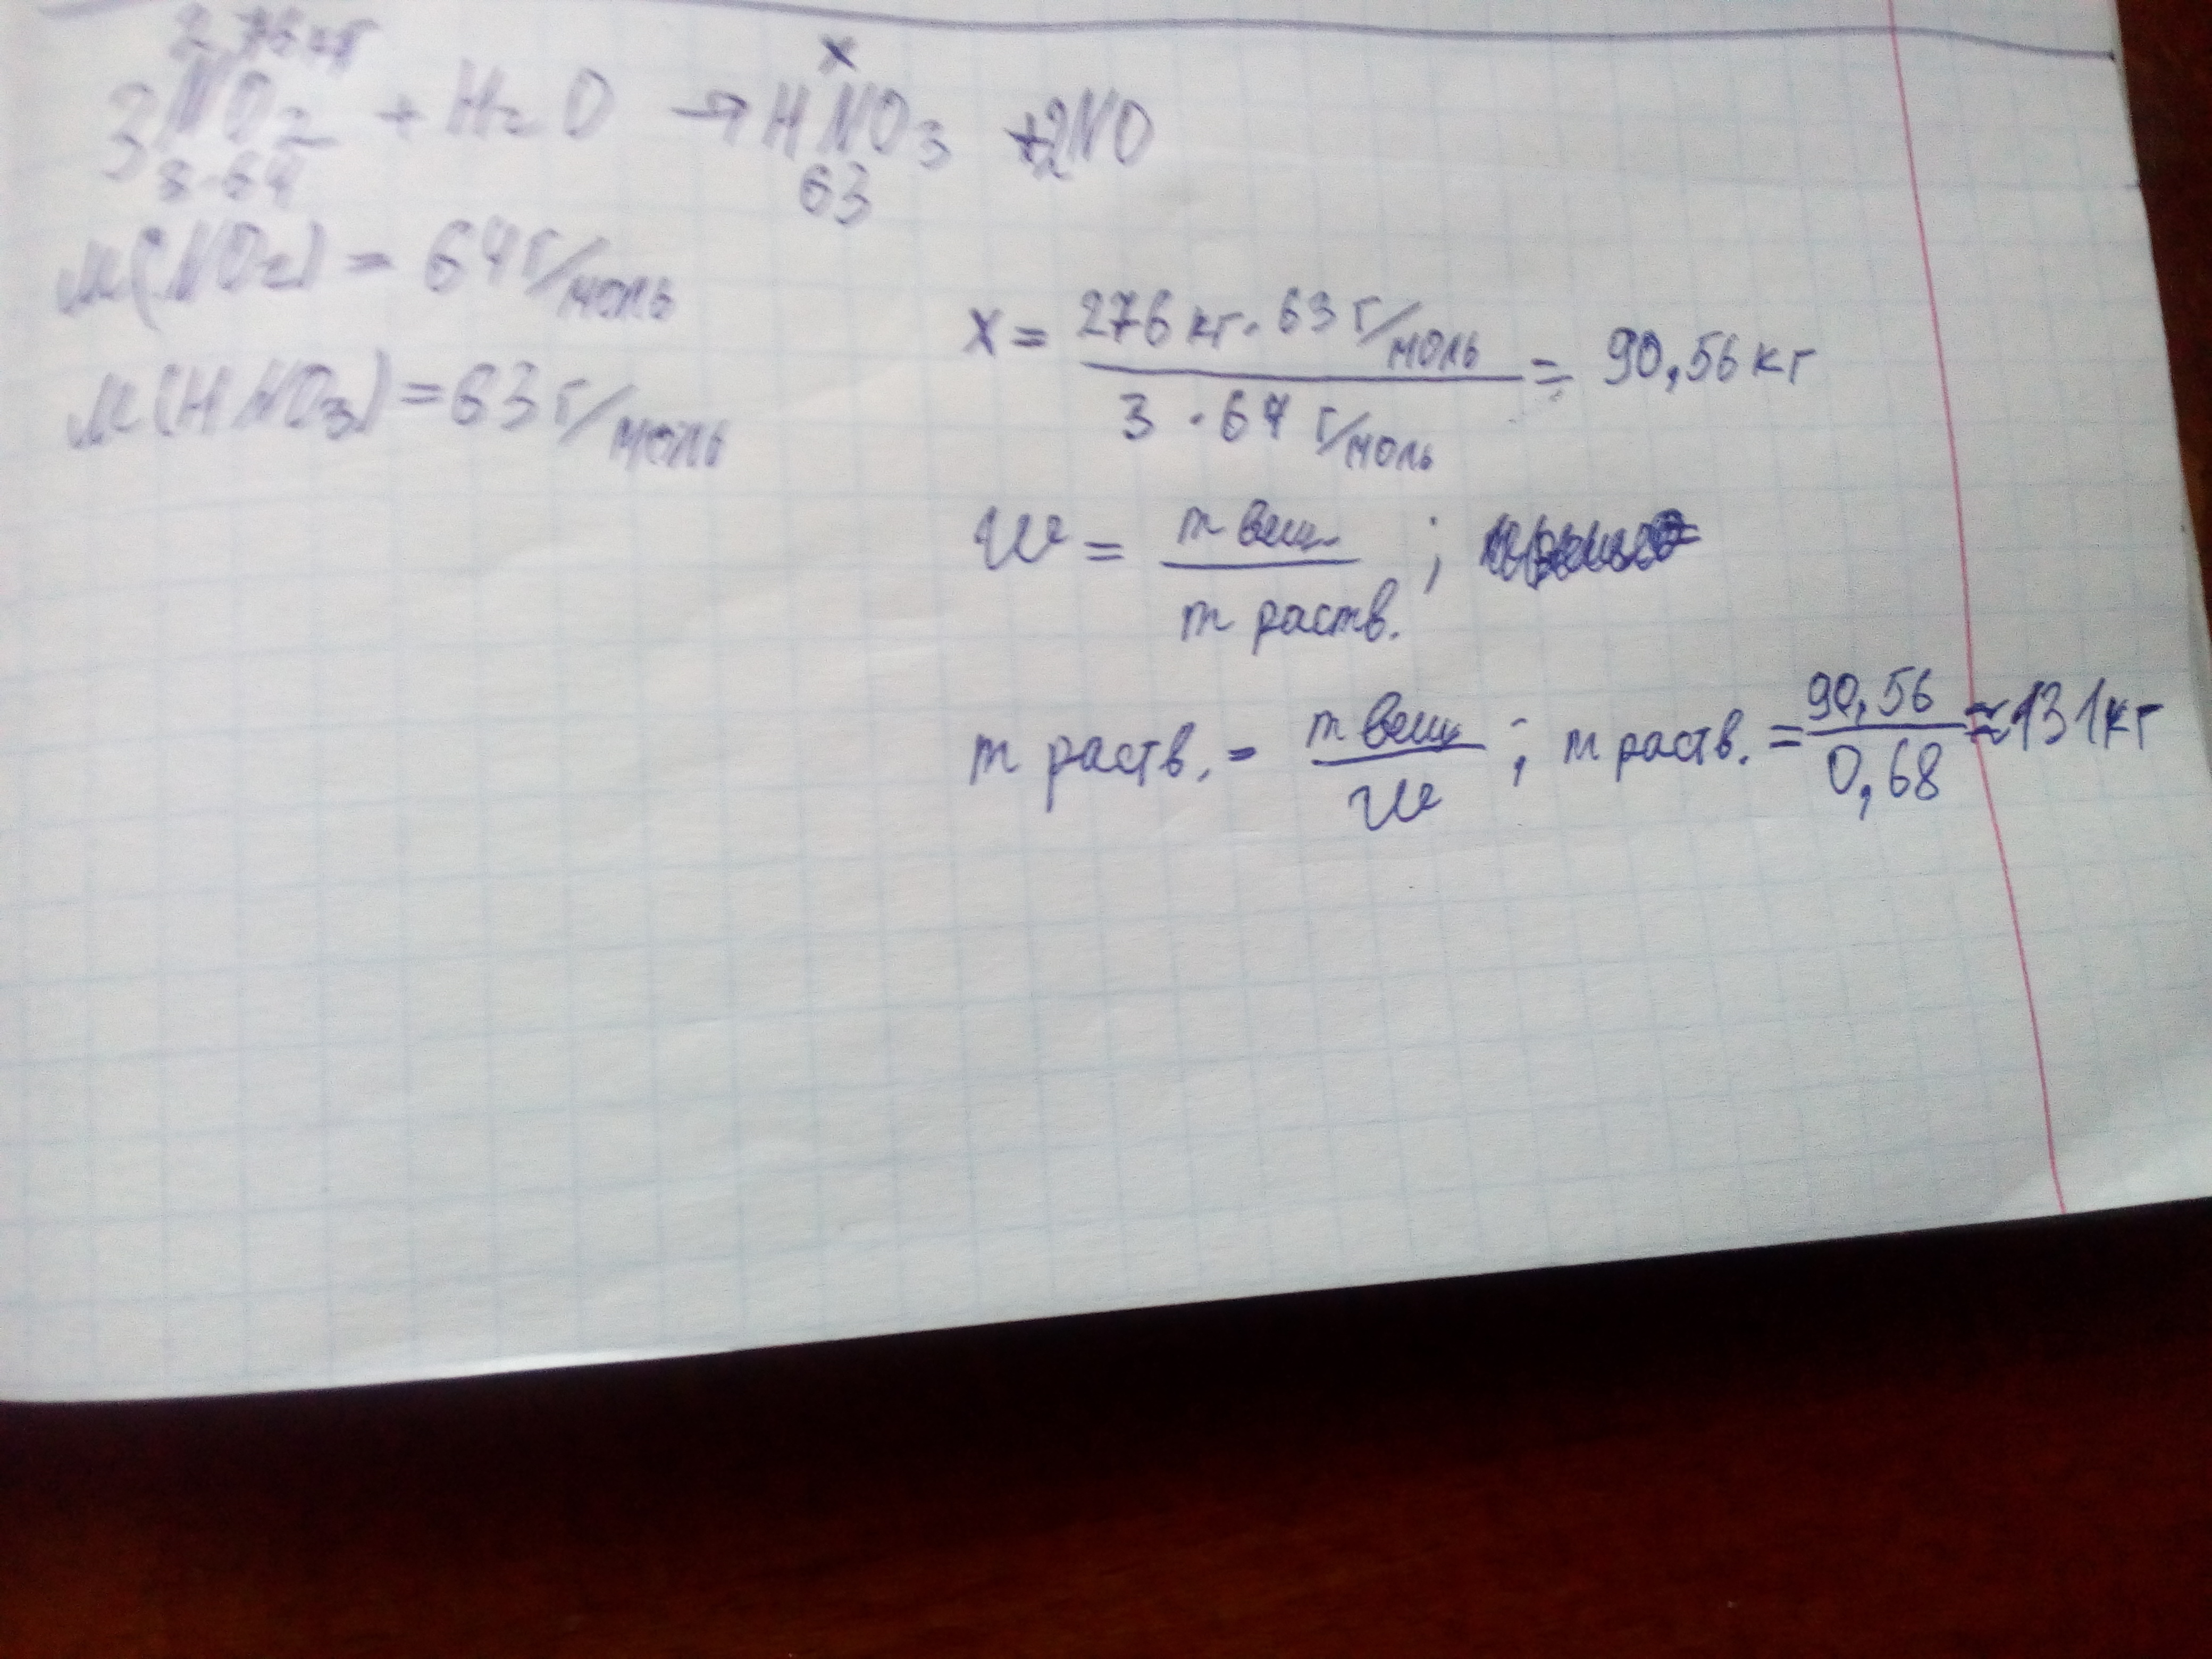 276 кг x
3NO2 + H2O → HNO3 + 2NO
3·64 63
M(NO2) = 64 г/моль
M(HNO3) = 63 г/моль
x = 276 кг · 63 г/моль / 3 · 64 г/моль = 90,56 кг
W = m вещ. / m раств. ;
m раств. = m вещ / W ; m раств. = 90,56 / 0,68 ≈ 131 кг